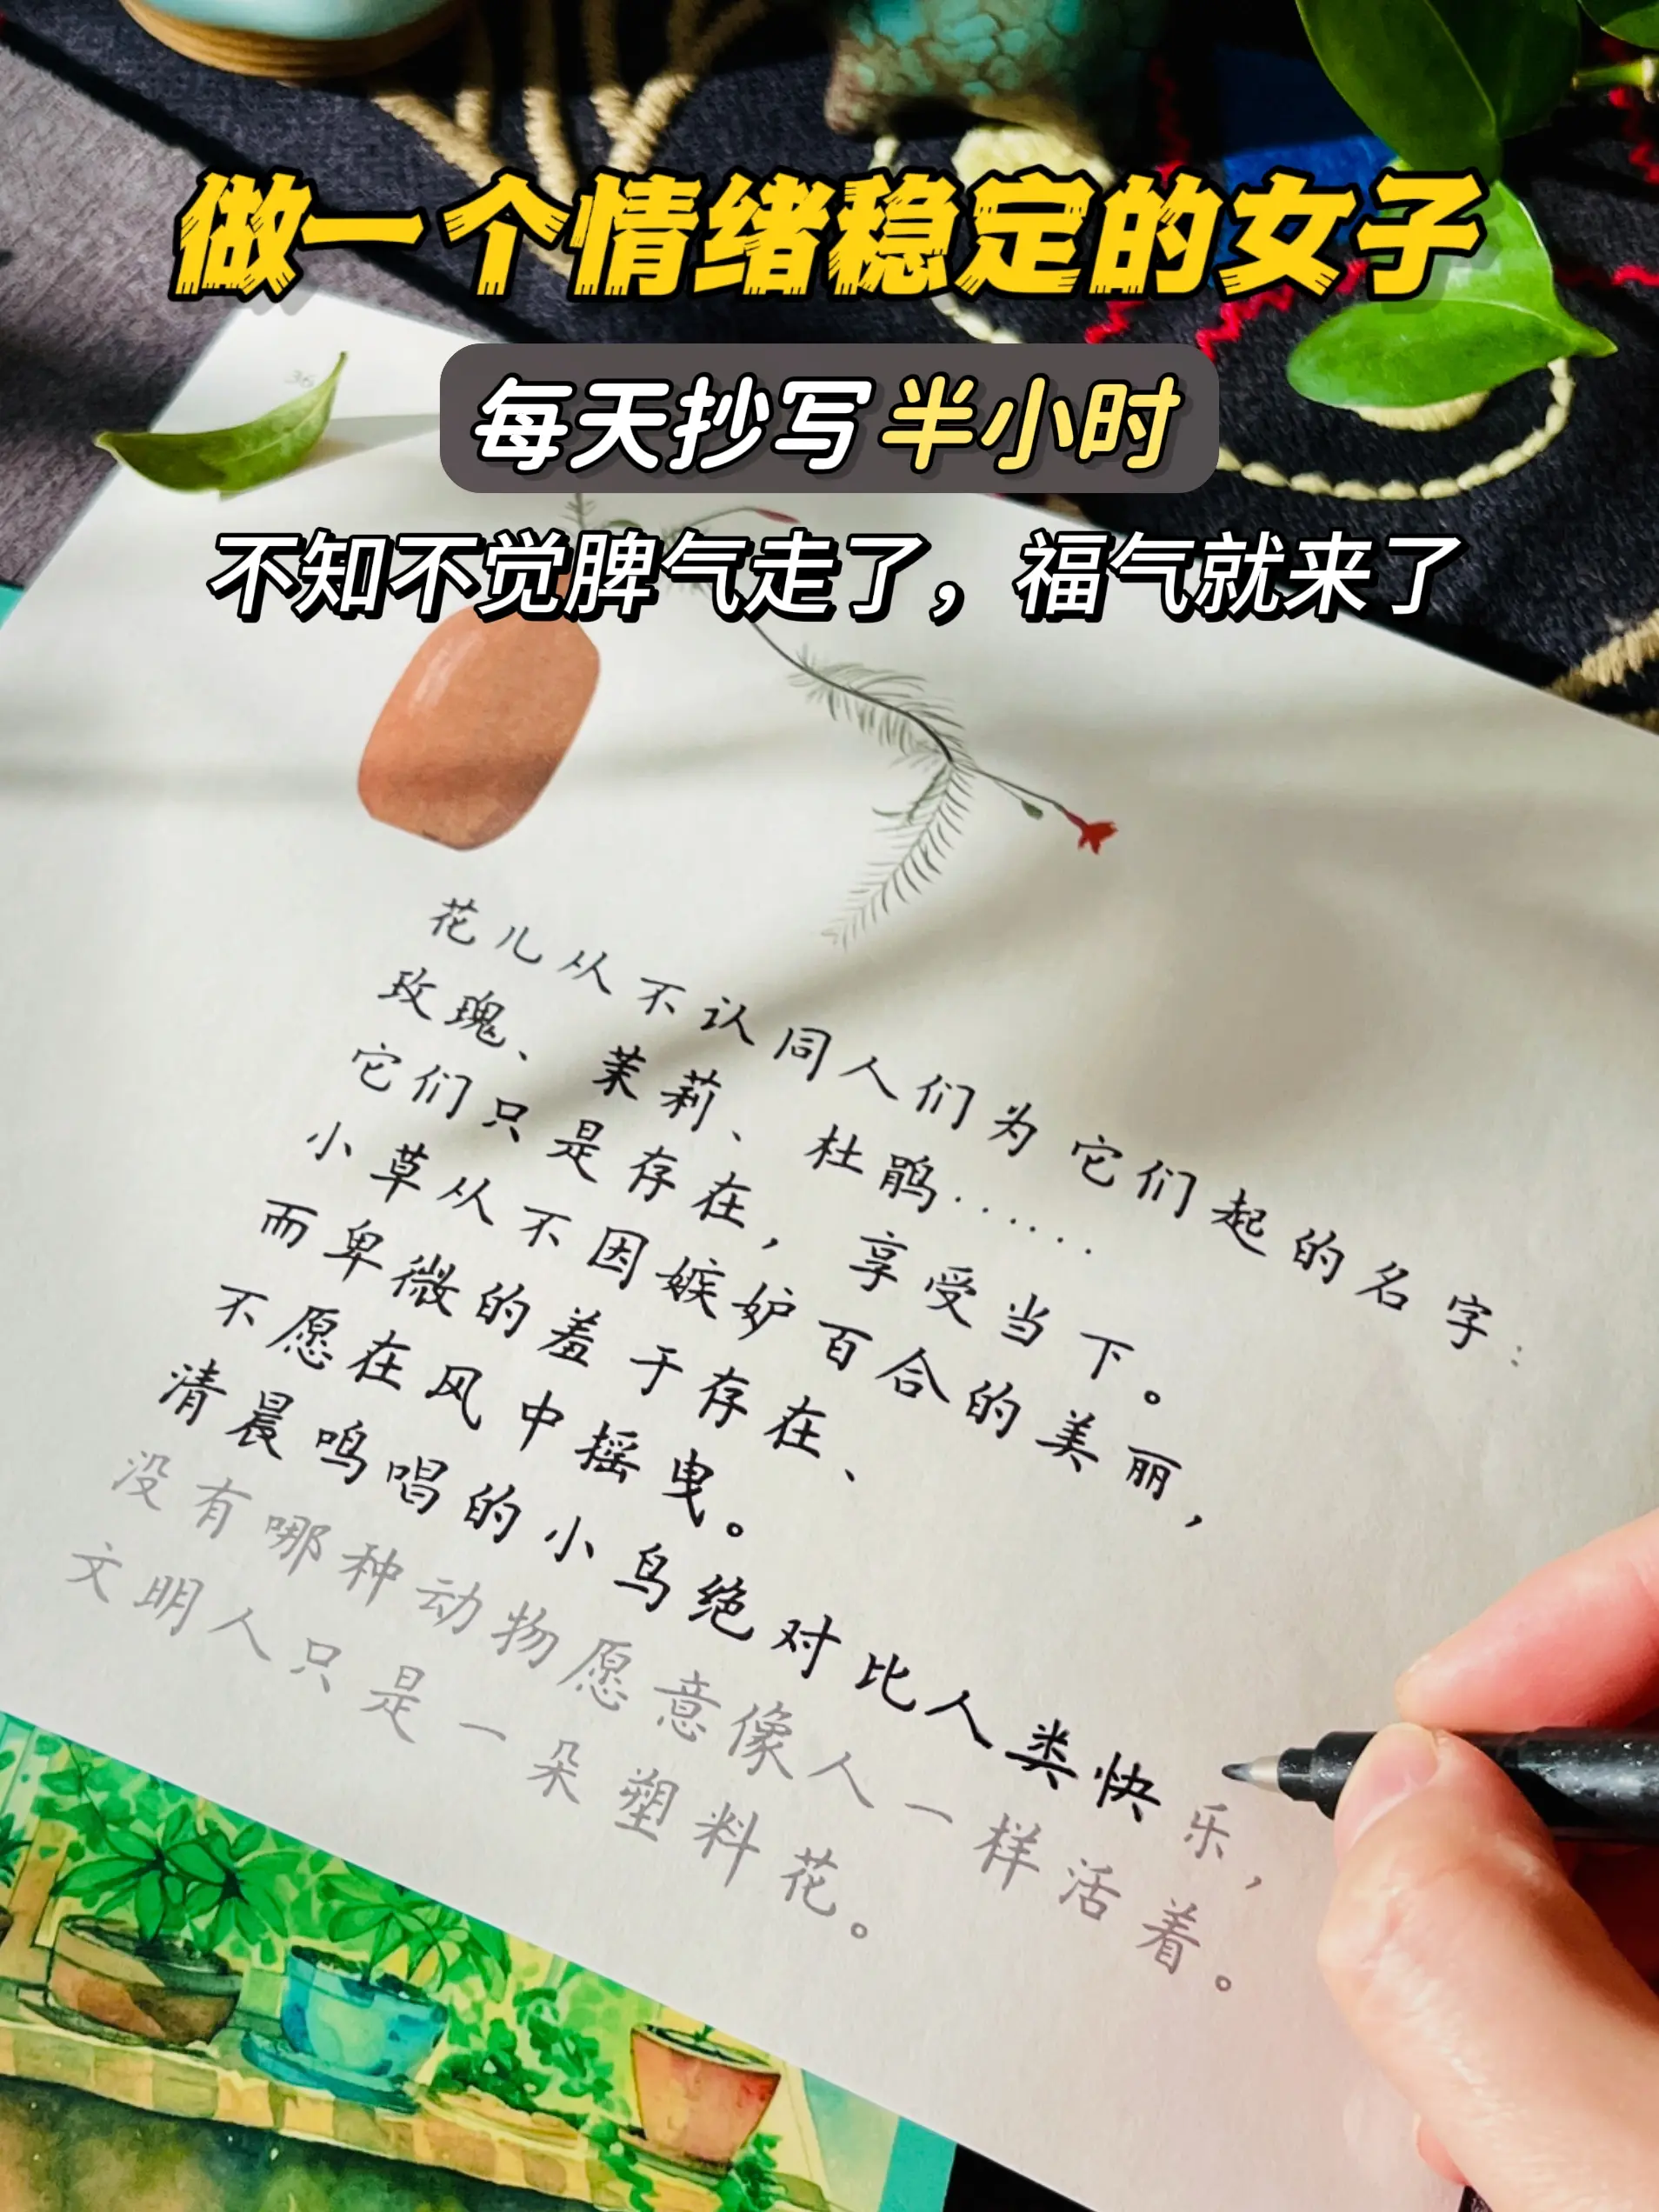 做一个情绪稳定的女子
每天抄写半小时
不知不觉脾气走了，福气就来了
36
花儿从不认同人们为它们起的名字：
玫瑰、茉莉、杜鹃……
它们只是存在，享受当下。
小草从不因嫉妒百合的美丽，
而卑微的羞于存在、
不愿在风中摇曳。
清晨鸣唱的小鸟绝对比人类快乐，
没有哪种动物愿意像人一样活着。
文明人只是一朵塑料花。